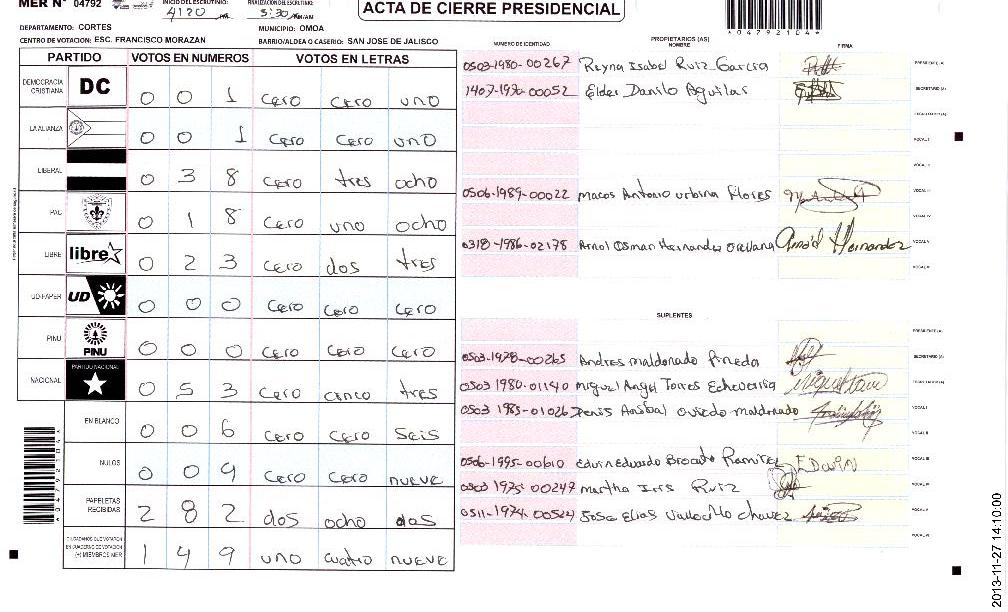 MER N° 04792
INICIO DEL ESCRUTINIO:
4:20
FINALIZACION DEL ESCRUTINIO:
5:30
ACTA DE CIERRE PRESIDENCIAL
*04792104*
DEPARTAMENTO: CORTES
MUNICIPIO: OMOA
CENTRO DE VOTACION: ESC. FRANCISCO MORAZAN
BARRIO/ALDEA O CASERIO: SAN JOSE DE JALISCO
PARTIDO VOTOS EN NUMEROS VOTOS EN LETRAS
DEMOCRACIA CRISTIANA DC 0 0 1 cero cero uno
LA ALIANZA 0 0 1 cero cero uno
LIBERAL 0 3 8 cero tres ocho
PAC 0 1 8 cero uno ocho
LIBRE libre 0 2 3 cero dos tres
UD-FAPER UD 0 0 0 cero cero cero
PINU PINU 0 0 0 cero cero cero
NACIONAL PARTIDO NACIONAL 0 5 3 cero cinco tres
EN BLANCO 0 0 6 cero cero seis
NULOS 0 0 9 cero cero nueve
PAPELETAS RECIBIDAS 2 8 2 dos ocho dos
CIUDADANOS QUE VOTARON EN CUADERNO DE VOTACION (+) MIEMBROS MER 1 4 9 uno cuatro nueve
NUMERO DE IDENTIDAD PROPIETARIOS (AS) NOMBRE FIRMA
0503-1980-00267 Reyna Isabel Ruiz Garcia PRESIDENTE(A)
1407-1990-00052 Elder Danilo Aguilar SECRETARIO (A)
VOCAL I
0506-1989-00022 Macos Antonio urbina Flores VOCAL III
VOCAL IV
0318-1986-02178 Arnol Osman Hernandez Orellana Arnold Hernandez VOCAL V
SUPLENTES
PRESIDENTE(A)
0503-1978-00265 Andres maldonado Pineda SECRETARIO (A)
0503 1980-01140 Miguel Angel Torres Echeverria
0503 1985-01026 Denis Anibal oviedo maldonado VOCAL I
VOCAL II
0506-1995-00610 Edwin Eduardo Brocato Ramirez Edwin VOCAL III
0503 1975-00247 martha Iris Ruiz VOCAL IV
0511-1974-00524 Jose Elias Vallecillo chavez VOCAL V
2013-11-27 14:10:00